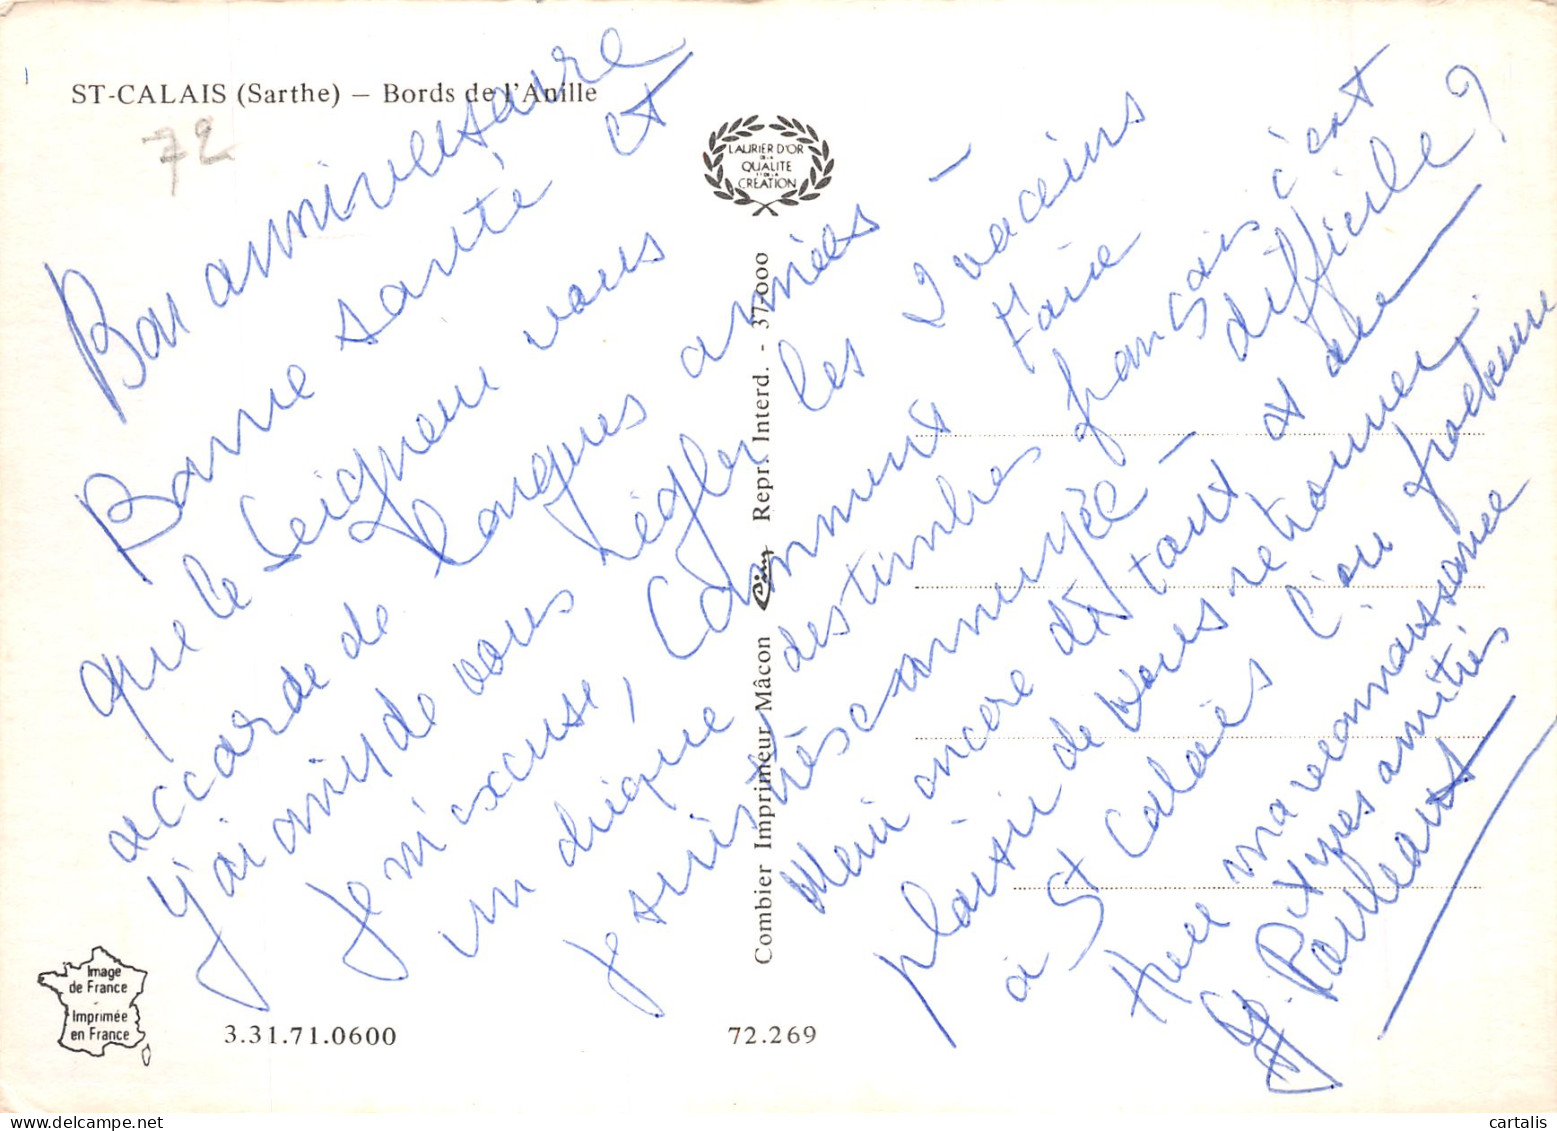 ST-CALAIS (Sarthe) – Bords de l'Anille
72
LAURIER D'OR
DE LA
QUALITE
ET DE LA
CRÉATION
Bon anniversaire
Bonne santé et
que le Seigneur vous
accorde de longues années –
j'ai omis de vous régler les 2 vaccins
je m'excuse, comment faire
un chèque destimbres français c'est difficile ?
je suis très ennuyée –
Merci encore de tout et au
plaisir de vous retrouver
à St Calais l'an prochain
Avec ma reconnaissance
et mes amitiés
Combier Imprimeur Mâcon Cim Repr. Interd. - 37.000
Image
de France
Imprimée
en France
3.31.71.0600
72.269
cartalis